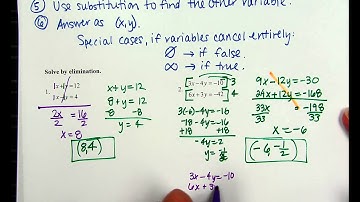 ⑤ Use substitution to find the other variable.
⑥ Answer as (x,y).
Special cases, if variables cancel entirely:
∅ → if false.
∞ → if true.
Solve by elimination.
1. 1x + 1y = 12
1x - 1y = 4
2x = 16
2 2
x = 8
(8,4)
x + y = 12
8 + y = 12
-8 -8
y = 4
2. [3x - 4y = -10] 3
[6x + 3y = -42] 4
3(-6) - 4y = -10
-18 - 4y = -10
+18 +18
-4y = 2
y =
3x - 4y = -10
6x + 3
9x - 12y = -30
24x + 12y = -168
33x -198
33 33
x = -6
(-6, -1/2)